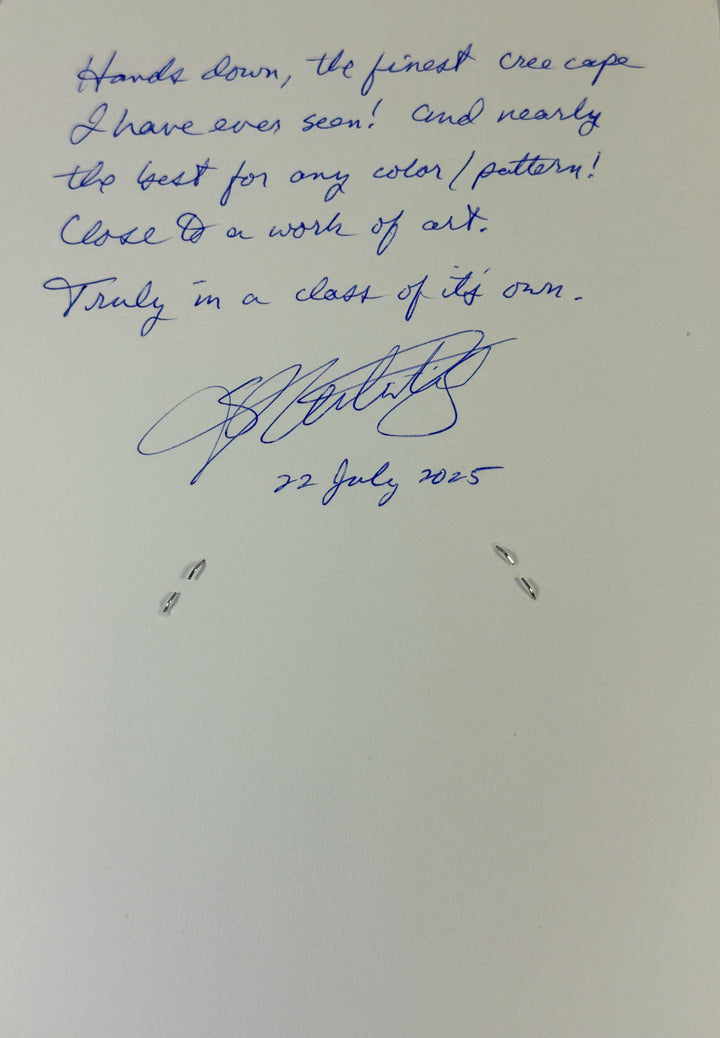 Hands down, the finest cree cape
I have ever seen! and nearly
the best for any color/pattern!
Close to a work of art.
Truly in a class of it's own.
22 July 2025